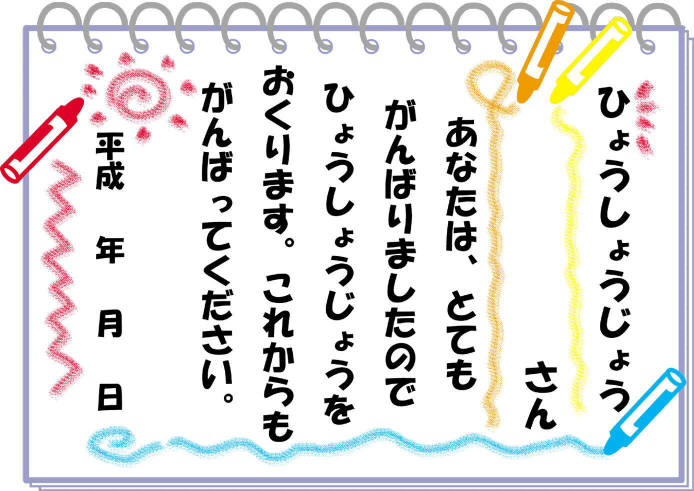 ひょうしょうじょう
さん
あなたは、とても
がんばりましたので
ひょうしょうじょうを
おくります。これからも
がんばってください。
平成　年　月　日